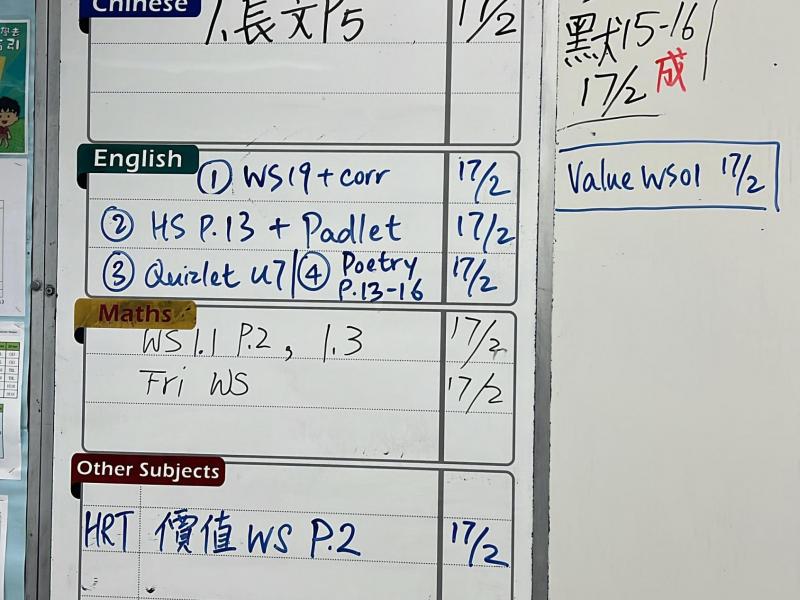 Chinese
1. 長文P5 17/2
English
① WS19+corr 17/2
② HS P.13 + Padlet 17/2
③ Quizlet U7 ④ Poetry P.13-16 17/2
Maths
WS 1.1 P.2, 1.3 17/2
Fri WS 17/2
Other Subjects
HRT 價值 WS P.2 17/2
默 15-16
17/2 成
Value WS01 17/2